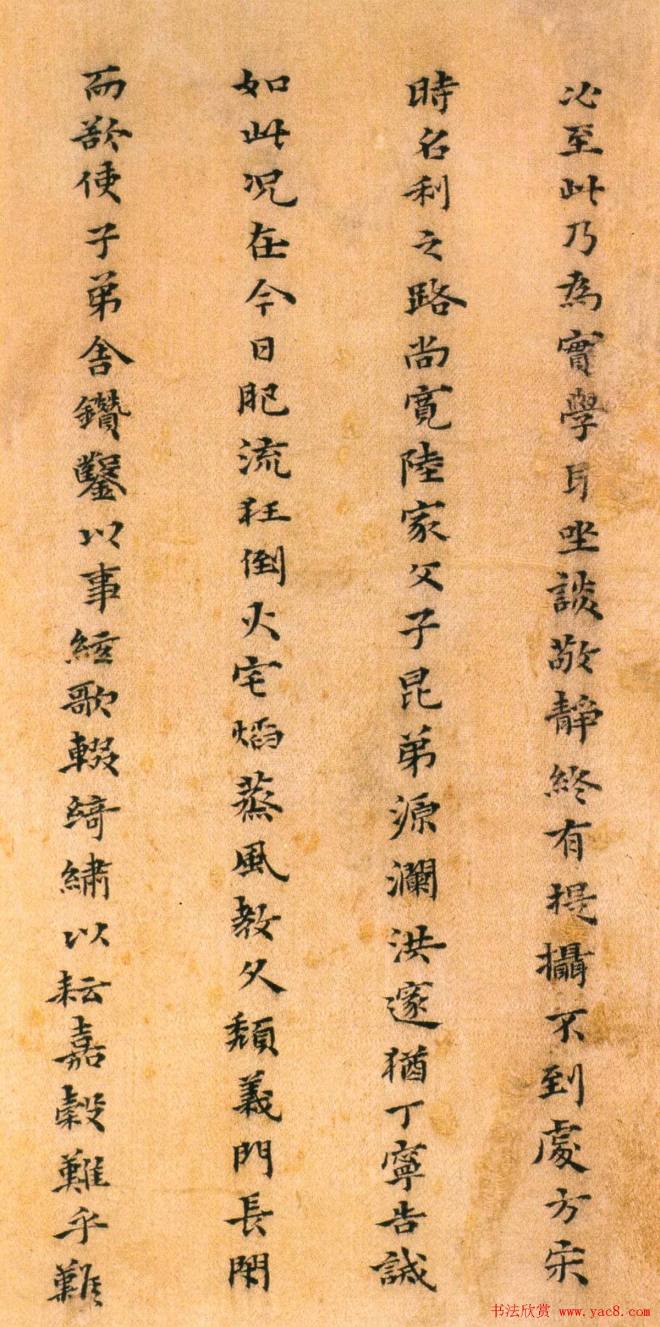 必至此乃為實學耳坐談敬靜終有提攝不到處方宋
時名利之路尚寬陸家父子昆弟源瀾洪邃猶丁寧告誡
如此況在今日肥流狂倒火宅焰蒸風教久頹義門長閉
而欲使子弟舍鑽鑿以事絃歌輟綺繡以耘嘉穀難乎難
书法欣赏 www.yac8.com